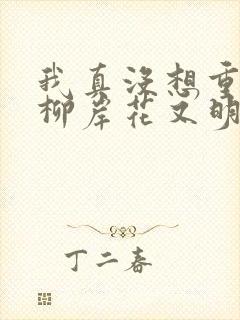 我真没想重
柳岸花又明
丁二春